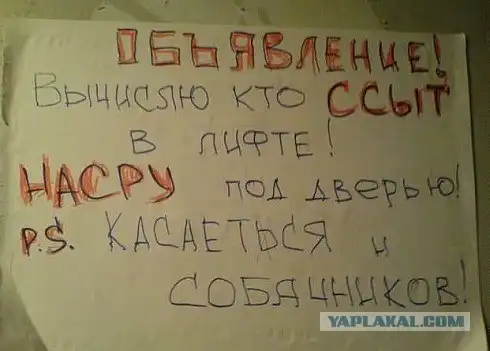 ОБЪЯВЛЕНИЕ!
Вычислю кто ССЫТ
в лифте!
НАСРУ под дверью!
P.S. КАСАЕТЬСЯ и
СОБАЧНИКОВ!
YAPLAKAL.COM